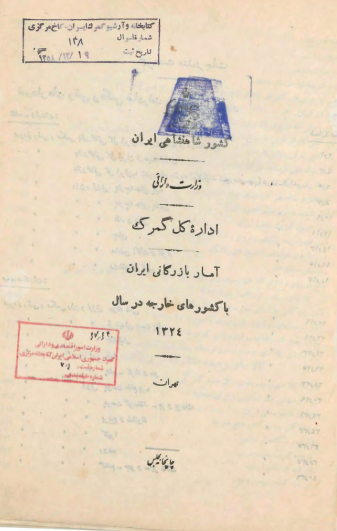 کتابخانه و آرشیو گمرک ایران-کاخ مرکزی
شماره
۱۳۸
تاریخ ثبت ۱۳۵۸/۱۲/۱۹
کشور شاهنشاهی ایران
وزارت دارائی
ادارهٔ کل گمرک
آمار بازرگانی ایران
با کشورهای خارجه در سال
۱۳۲۴
وزارت امور اقتصادی و دارائی
گمرک جمهوری اسلامی ایران
تهران
چاپخانه مجلس